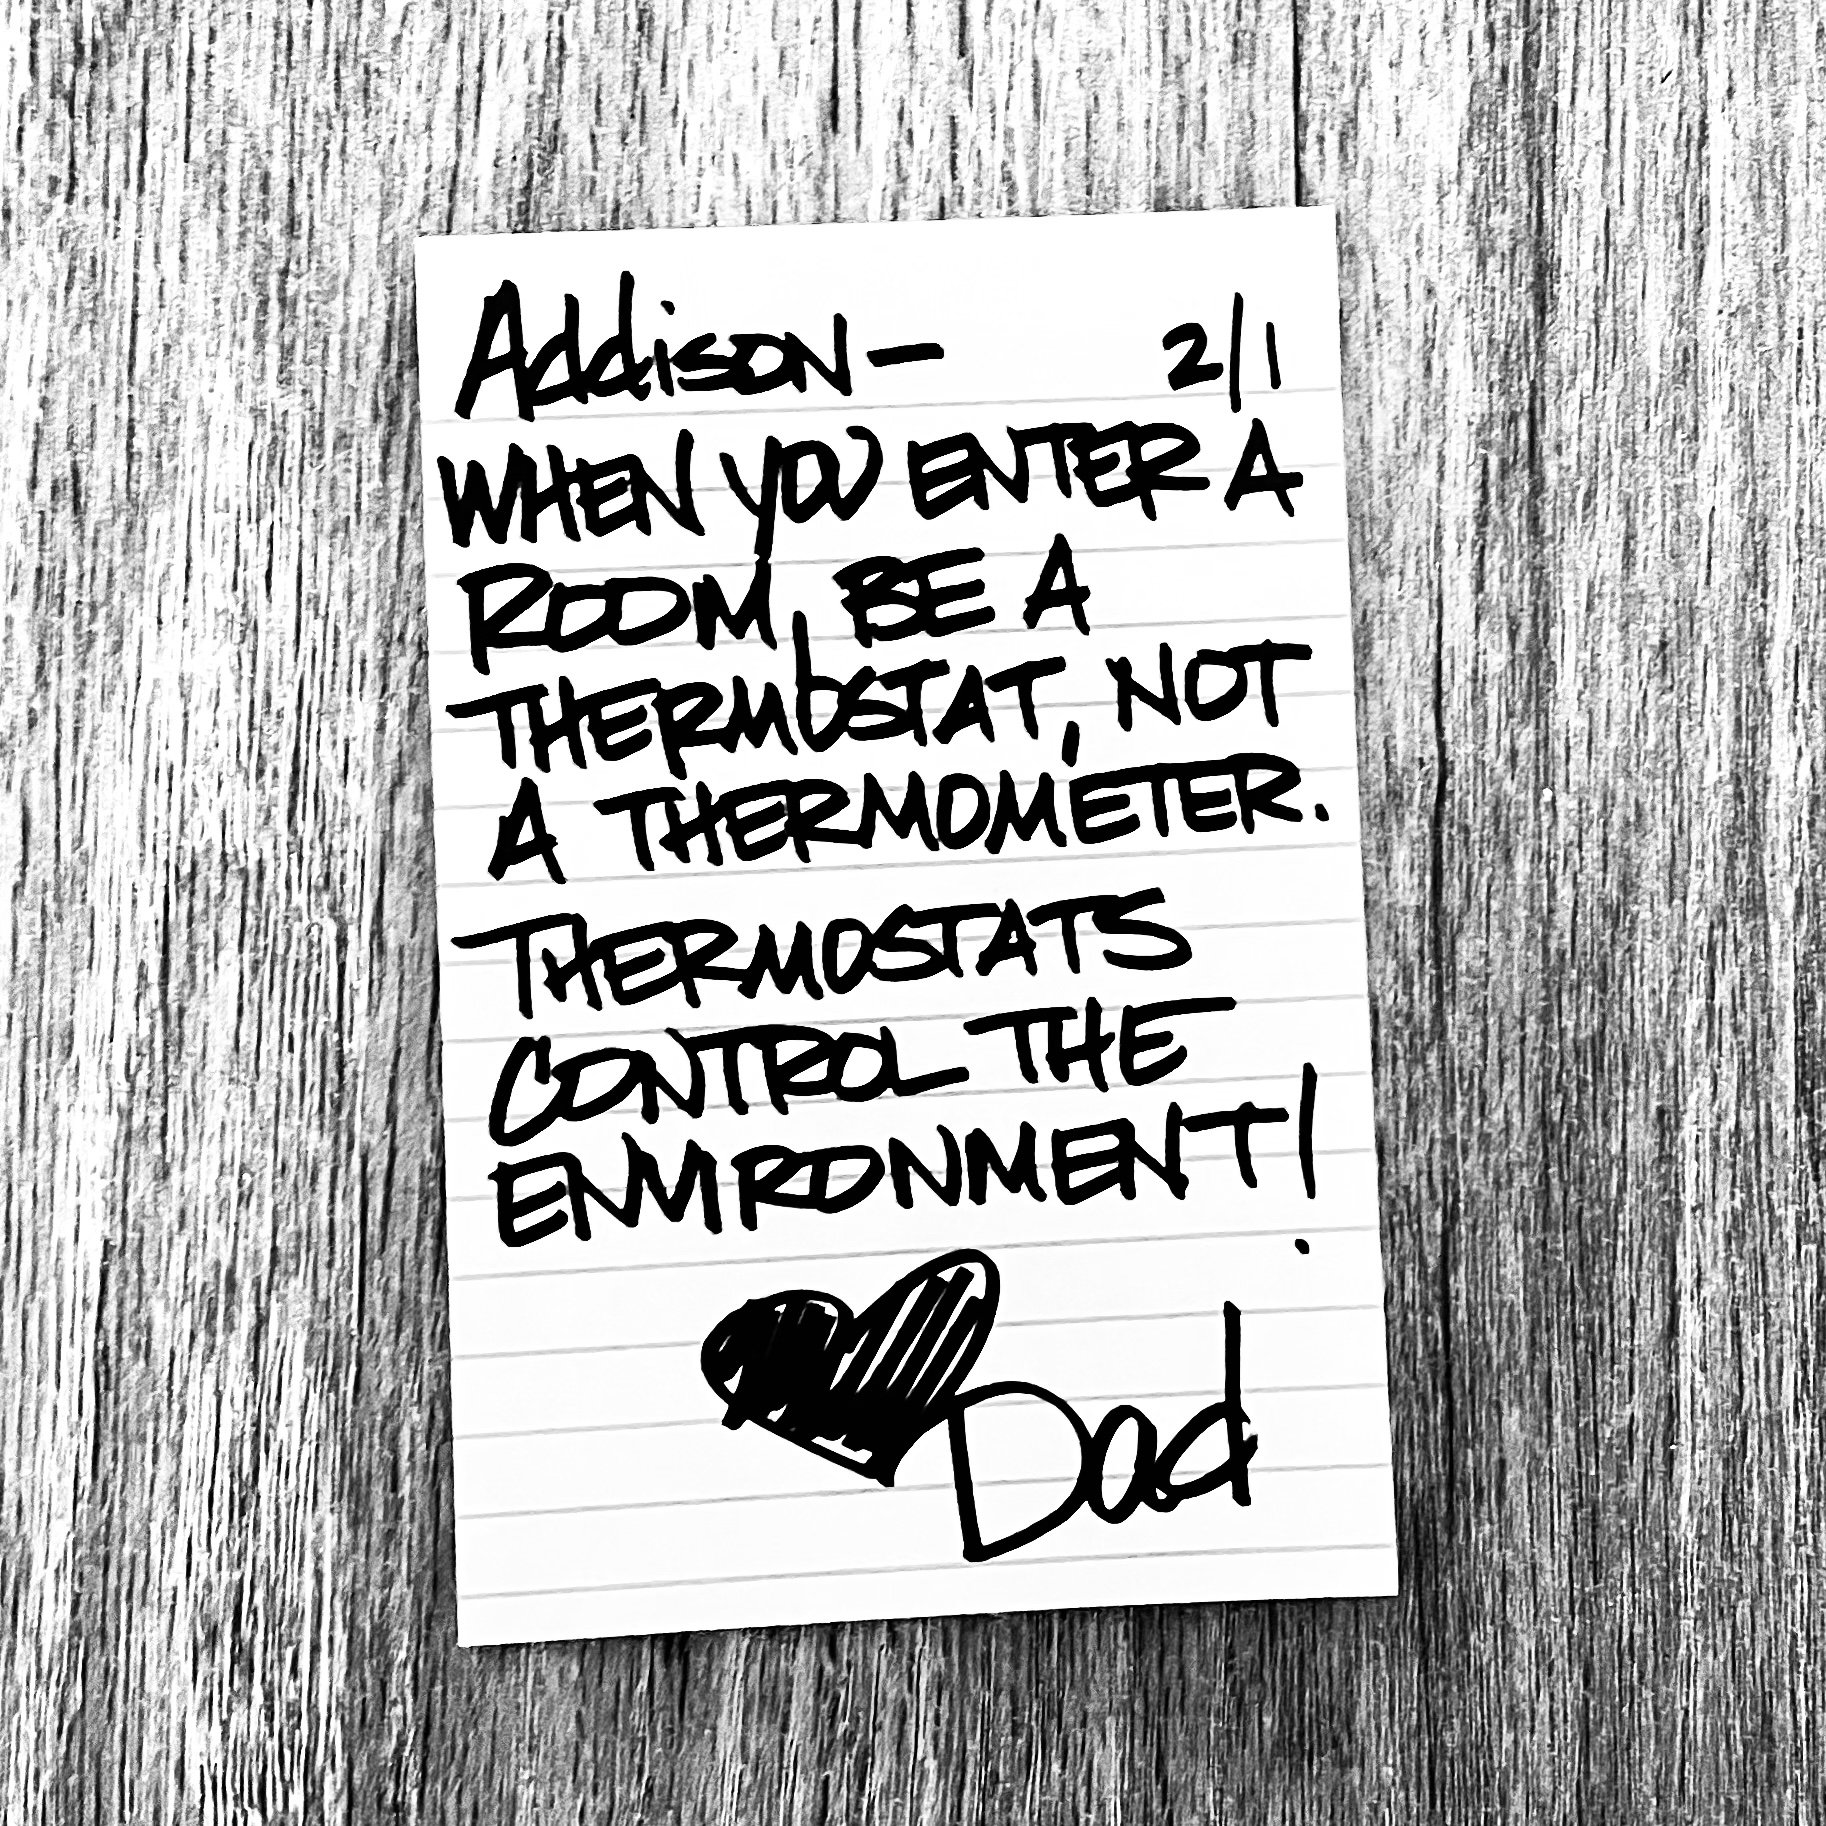 Addison- 2/1
WHEN YOU ENTER A
ROOM, BE A
THERMOSTAT, NOT
A THERMOMETER.
THERMOSTATS
CONTROL THE
ENVIRONMENT!
Dad